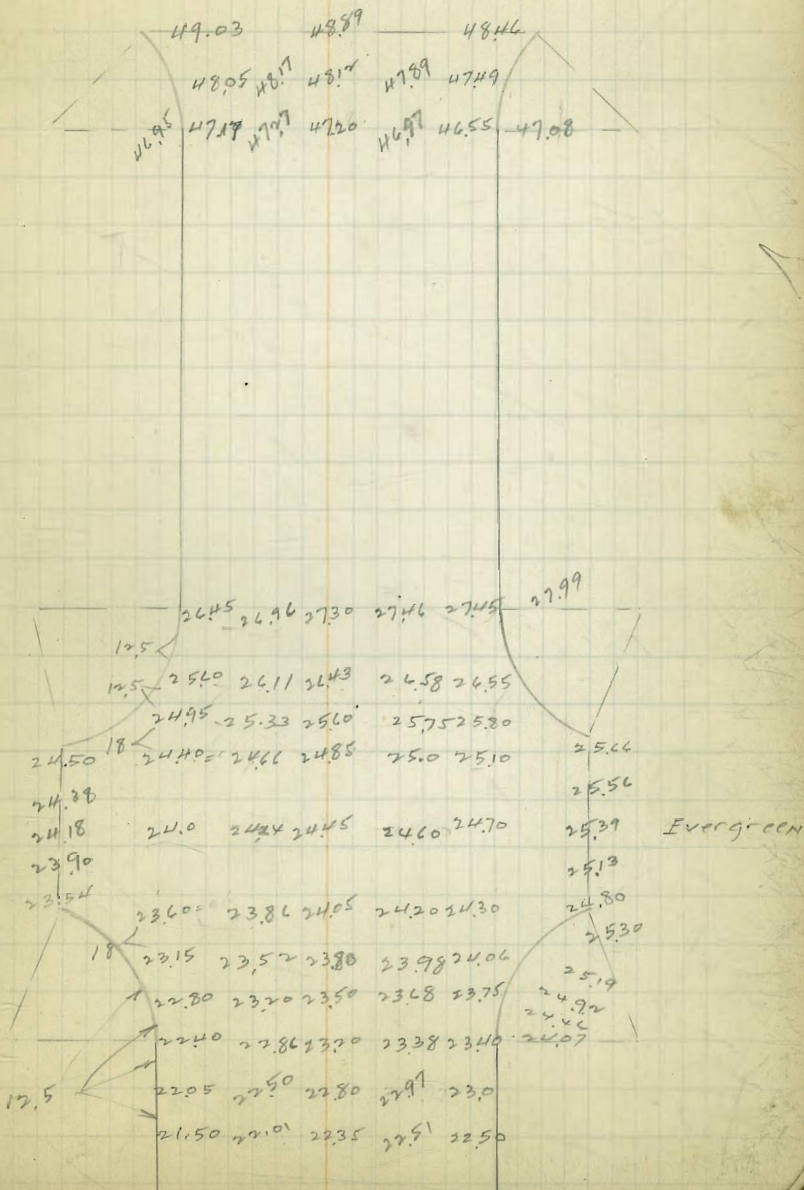 49.03 48.89 48.46
48.05 48.17 48.12 47.89 47.49
46.95 47.17 47.27 47.20 46.97 46.55 47.08
26.45 26.96 27.30 27.46 27.45 27.99
12.5
12.5 25.60 26.11 26.43 26.58 26.55
24.95 25.33 25.60 25.75 25.80
24.50 18 24.40= 24.66 24.85 25.0 25.10 25.66
24.38 25.56
24.18 24.0 24.24 24.45 24.60 24.70 25.39 Evergreen
23.90 25.13
23.54 24.80
23.60= 23.86 24.05 24.20 24.30 25.30
18 23.15 23.52 23.80 23.98 24.06 25.19
22.80 23.20 23.50 23.68 23.75 24.92
24.46
22.40 22.86 23.20 23.38 23.40 24.07
12.5 22.05 22.50 22.80 22.97 23.0
21.50 22.01 22.35 22.51 22.50